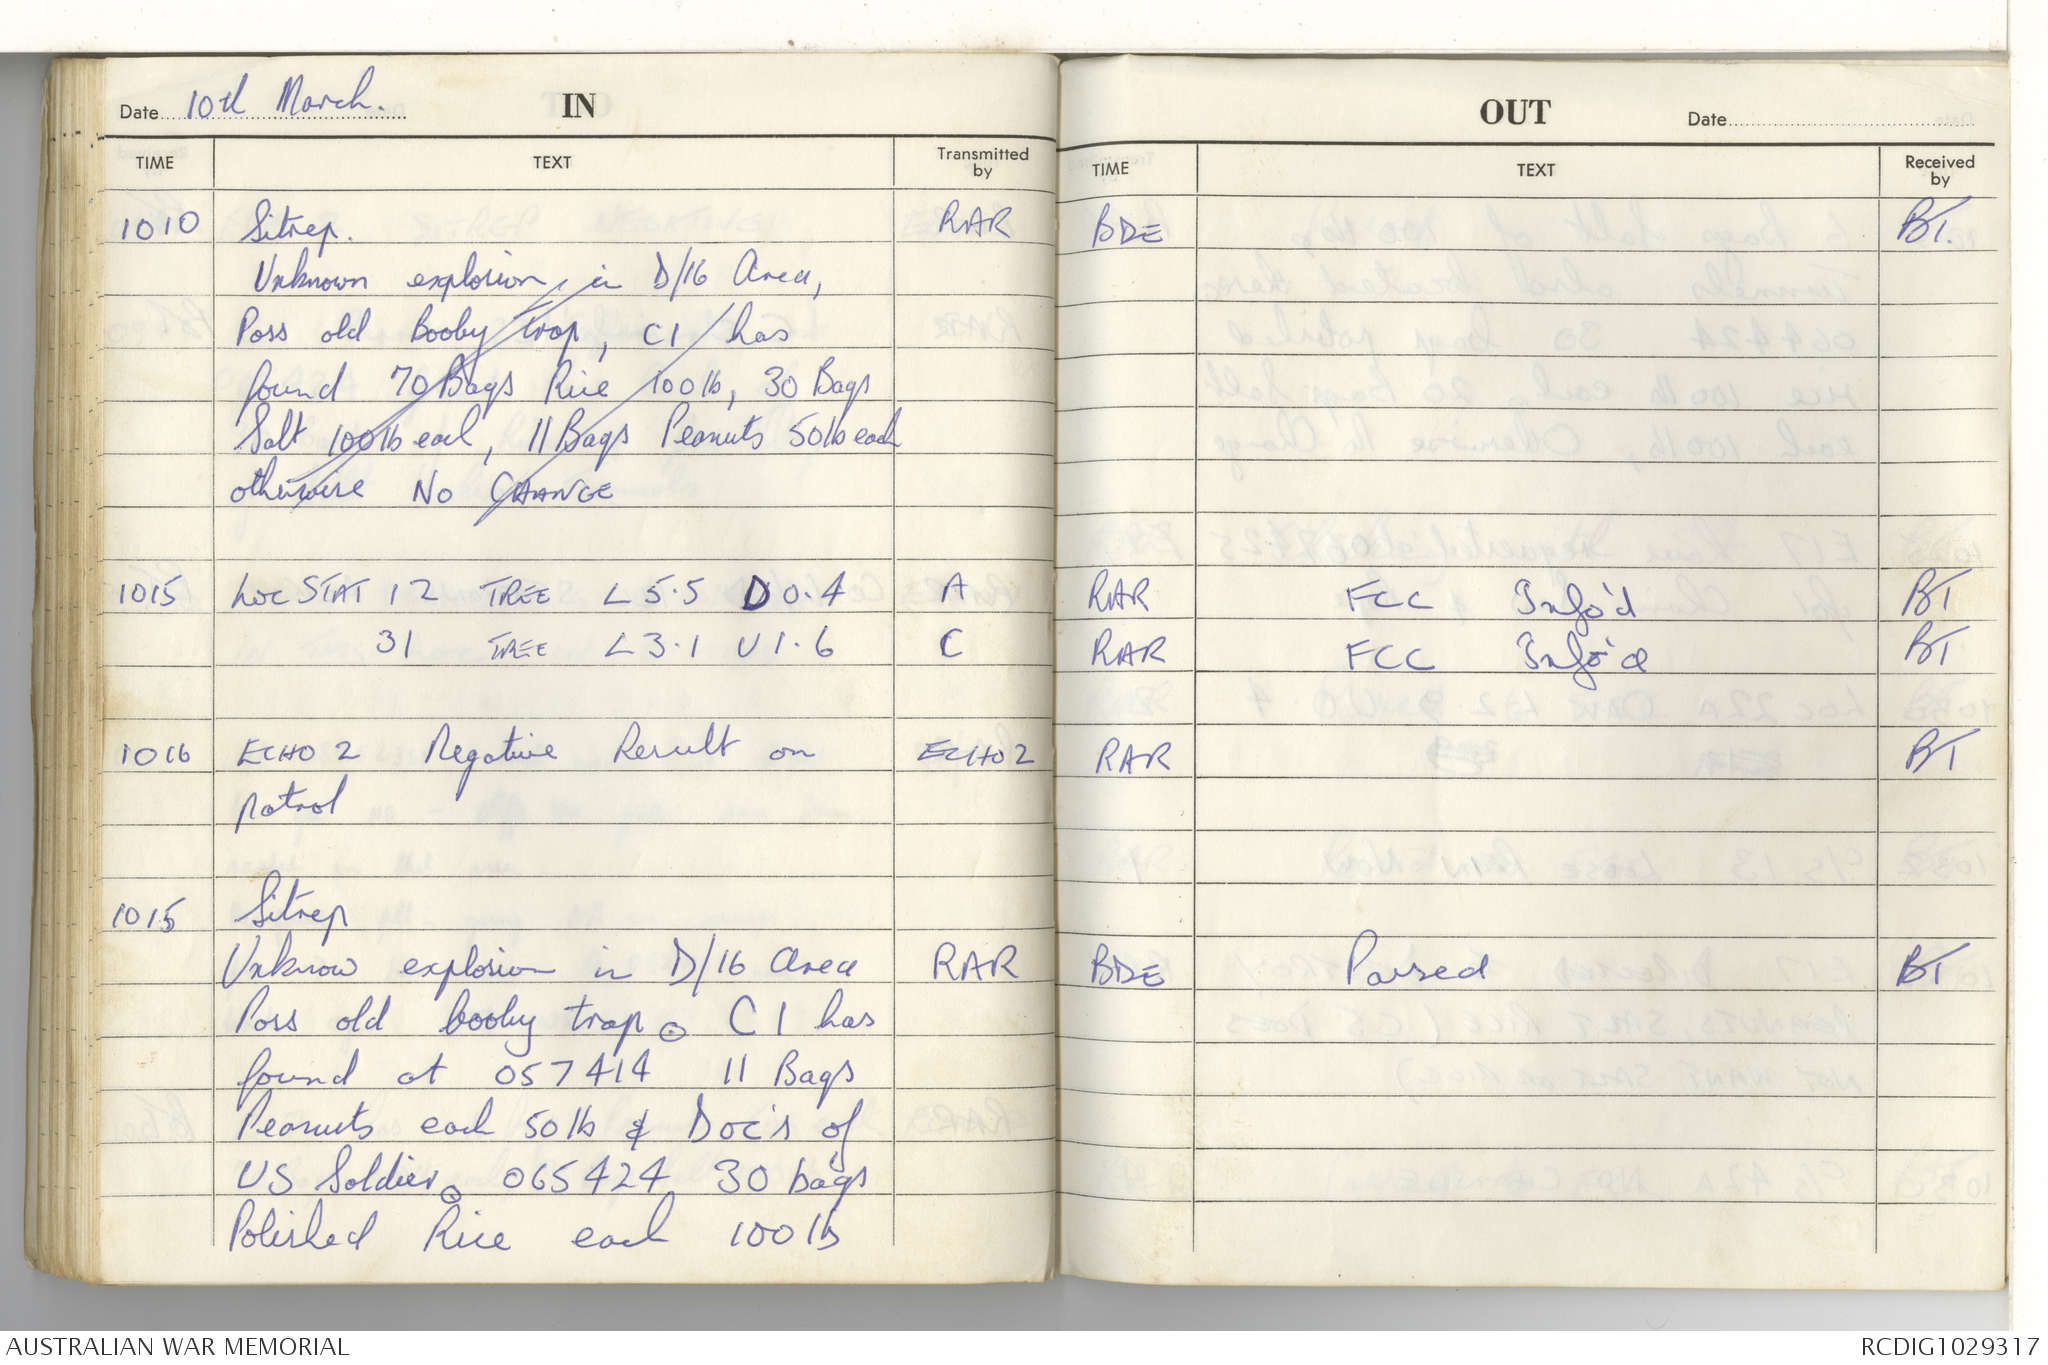 Date 10th March. IN
TIME TEXT Transmitted by
1010 Sitrep. RAR
Unknown explosion, in D/16 Area,
Poss old Booby trap, C1 has
found 70 Bags Rice 100lb, 30 Bags
Salt 100lb each, 11 Bags Peanuts 50lb each
otherwise NO CHANGE
1015 LOC STAT 12 TREE L 5.5 D 0.4 A
31 TREE L 3.1 U 1.6 C
1016 ECHO 2 Negative Result on ECHO 2
patrol
1015 Sitrep
Unknow explosion in D/16 area RAR
Poss old booby trap. C 1 has
found at 057414 11 Bags
Peanuts each 50 lb & Doc's of
US Soldier. 065424 30 bags
Polished Rice each 100 lb
OUT Date
TIME TEXT Received by
BDE BT.
RAR FCC Info'd BT
RAR FCC Info'd BT
RAR BT
BDE Passed BT
AUSTRALIAN WAR MEMORIAL RCDIG1029317